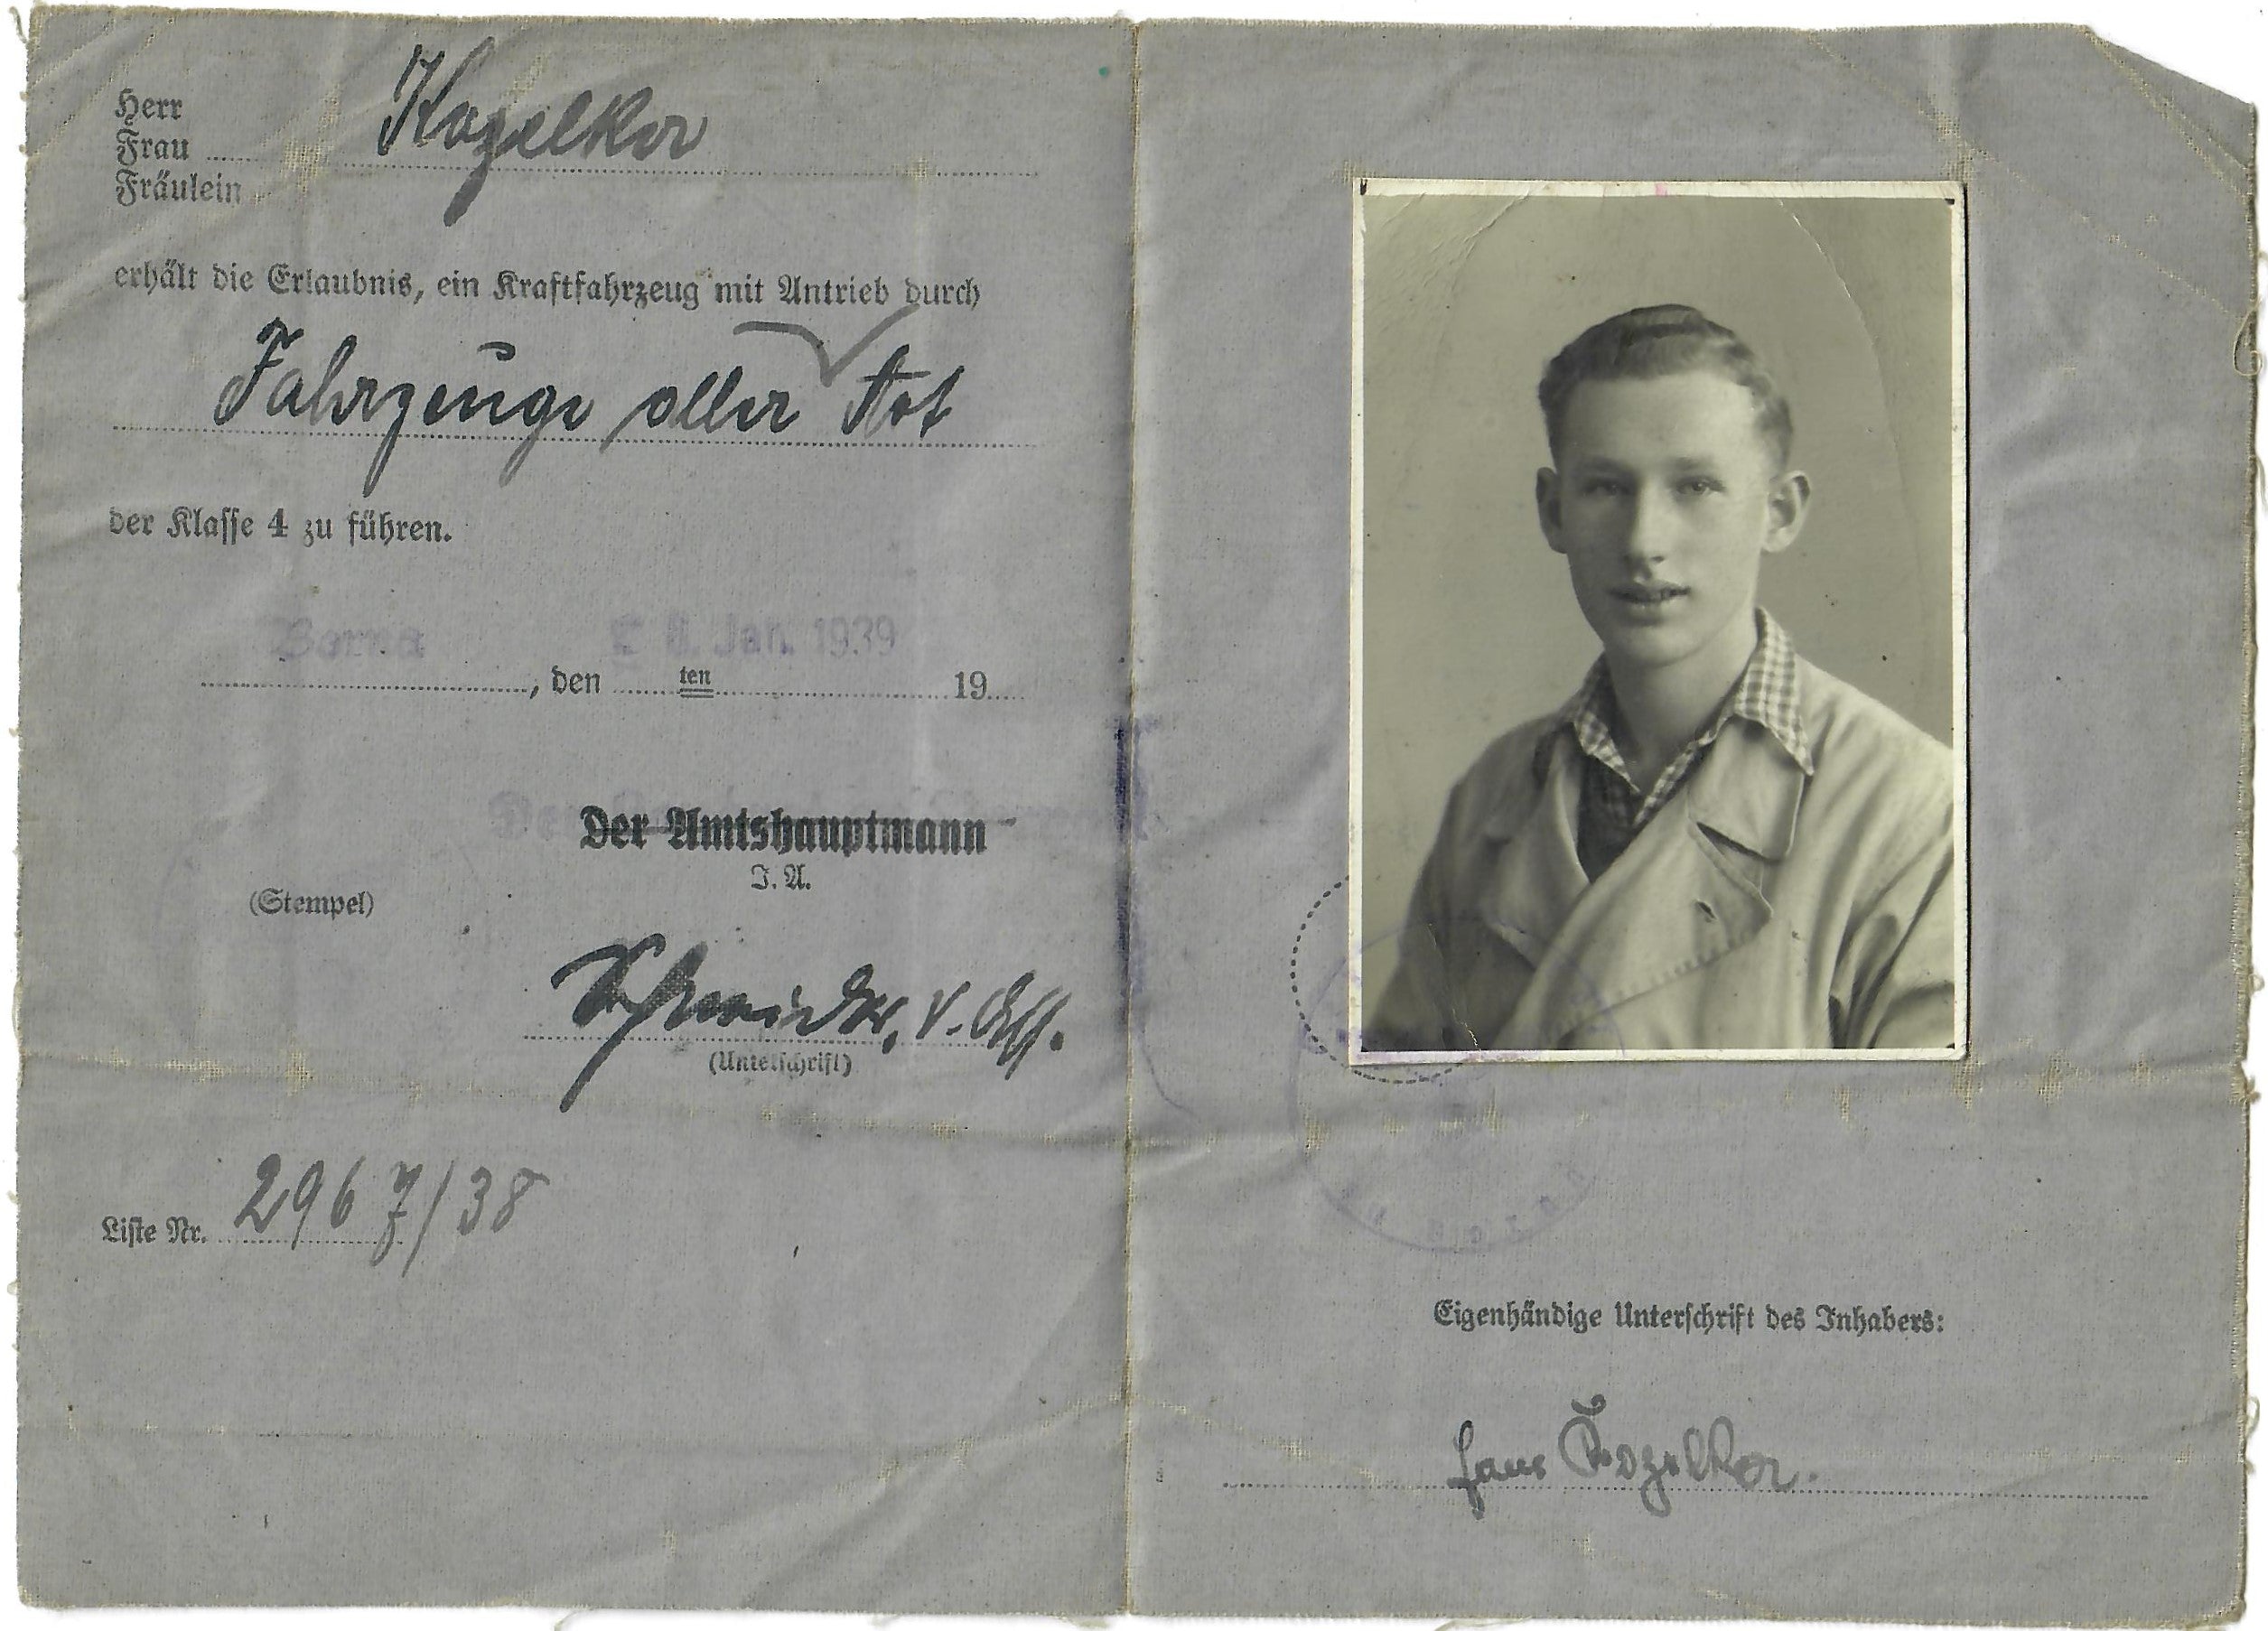 Herr
Frau
Fräulein
Kozelker
erhält die Erlaubnis, ein Kraftfahrzeug mit Antrieb durch
Fahrzeuge aller Art
der Klasse 4 zu führen.
Borna
Jan. 1939
, den ten 19
Der Amtshauptmann
I. A.
(Stempel)
(Unterschrift)
Liste Nr. 2967/38
Eigenhändige Unterschrift des Inhabers:
Hans Kozelker.